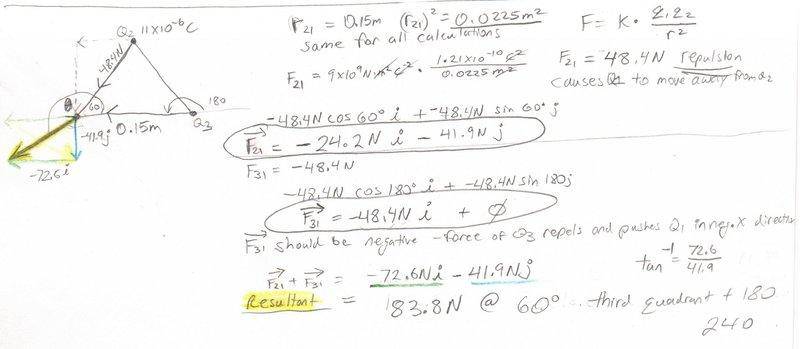 Q2 11x10⁻⁶C
48.4N
θ
60
180
Q3
0.15m
-41.9j
-72.6i
r21 = 0.15m (r21)² = 0.0225m²
same for all calculations
F = K · q1q2 / r²
F21 = 9x10⁹Nm²/C² · 1.21x10⁻¹⁰C² / 0.0225m²
F21 = 48.4N repulsion
causes Q1 to move away from Q2
-48.4N cos 60° i + -48.4N sin 60° j
F21 = -24.2N i - 41.9N j
F31 = -48.4N
-48.4N cos 180° i + -48.4N sin 180 j
F31 = -48.4N i + ∅
F31 should be negative - force of Q3 repels and pushes Q1 in neg. X direction
F21 + F31 = -72.6N i - 41.9N j
tan⁻¹ = 72.6 / 41.9
Resultant = 83.8N @ 60° .. third quadrant + 180
240